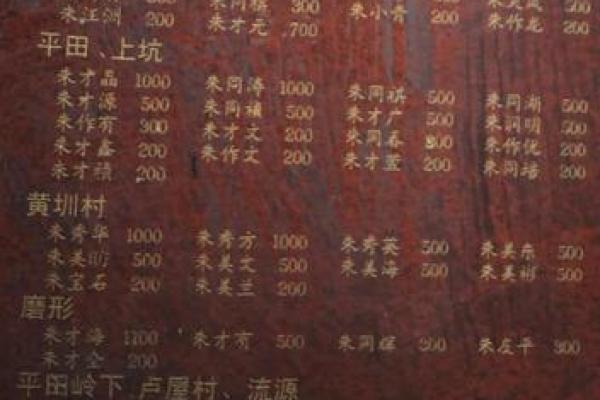 300 200
朱汪洲 200 朱才元 700 朱小青 200 朱作龙 200
平田、上坑
朱才晶 1000 朱同涛 1000 朱同祺 500 朱同渐 500
朱才源 500 朱同祯 500 朱才广 500 朱润明 500
朱作有 300 朱才文 200 朱同春 300 朱作优 200
朱才鑫 200 朱作文 200 朱才萱 200 朱同培 200
朱才槙 200
黄圳村
朱秀华 1000 朱秀方 1000 朱秀英 500 朱美东 500
朱美昉 500 朱美文 500 朱美海 500 朱美彬 500
朱宝石 200 朱美兰 200
磨形
朱才海 1700 朱才有 500 朱同辉 300 朱友平 300
朱才全 200
平田岭下 卢屋村、流源